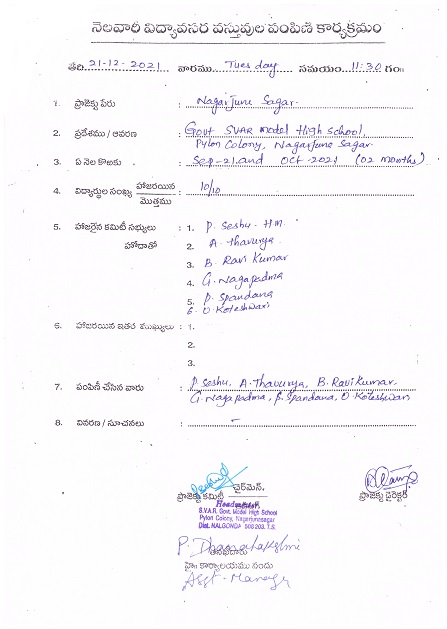 నెలవారీ విద్యావసర వస్తువుల పంపిణి కార్యక్రమం
తేది 21-12-2021 వారము Tuesday సమయం 11:30 గం॥
1. ప్రాజెక్టు పేరు : Nagarjuna Sagar.
2. ప్రదేశము / ఆవరణ : Govt SVAR Model High School,
Pylon Colony, Nagarjuna Sagar.
3. ఏ నెల కొఱకు : Sep-21 and Oct-2021 (02 months)
4. విద్యార్థుల సంఖ్య హాజరయిన / మొత్తము : 10/10
5. హాజరైన కమిటీ సభ్యులు : 1. P. Seshu. H.M.
హోదాతో 2. A. Thavurya.
3. B. Ravi Kumar
4. G. Nagapadma
5. P. Spandana
6. O Koteshwari
6. హాజరయిన ఇతర ముఖ్యులు : 1.
2.
3.
7. పంపిణీ చేసిన వారు : P Seshu, A. Thavurya, B. Ravi Kumar,
G. Nagapadma, P. Spandana, O Koteshwari
8. వివరణ / సూచనలు : -
చైర్‌మెన్.
ప్రాజెక్టు కమిటీ
ప్రాజెక్టు డైరెక్టర్
Headmaster
S.V.A.R. Govt. Model High School
Pylon Colony, Nagarjunasagar
Dist. NALGONDA 508 203. T.S.
P. Dhanalakshmi
హై॥ కార్యాలయము నందు
Asst. Manager